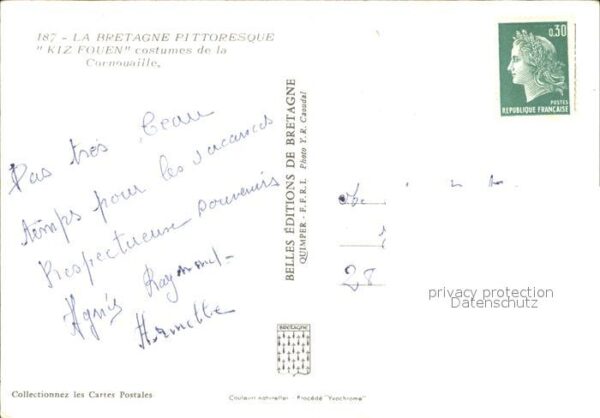 187 - LA BRETAGNE PITTORESQUE
" KIZ FOUEN" costumes de la
Cornouaille,
0,30
POSTES
REPUBLIQUE FRANÇAISE
Pas très beau
temps pour les vacances
Respectueux souvenirs
Agnès Raymond
BELLES ÉDITIONS DE BRETAGNE
QUIMPER - F.F.R.L Photo Y. R. Caoudal
28
privacy protection
Datenschutz
BRETAGNE
Collectionnez les Cartes Postales
Couleurs naturelles - Procédé "Yvachrome"